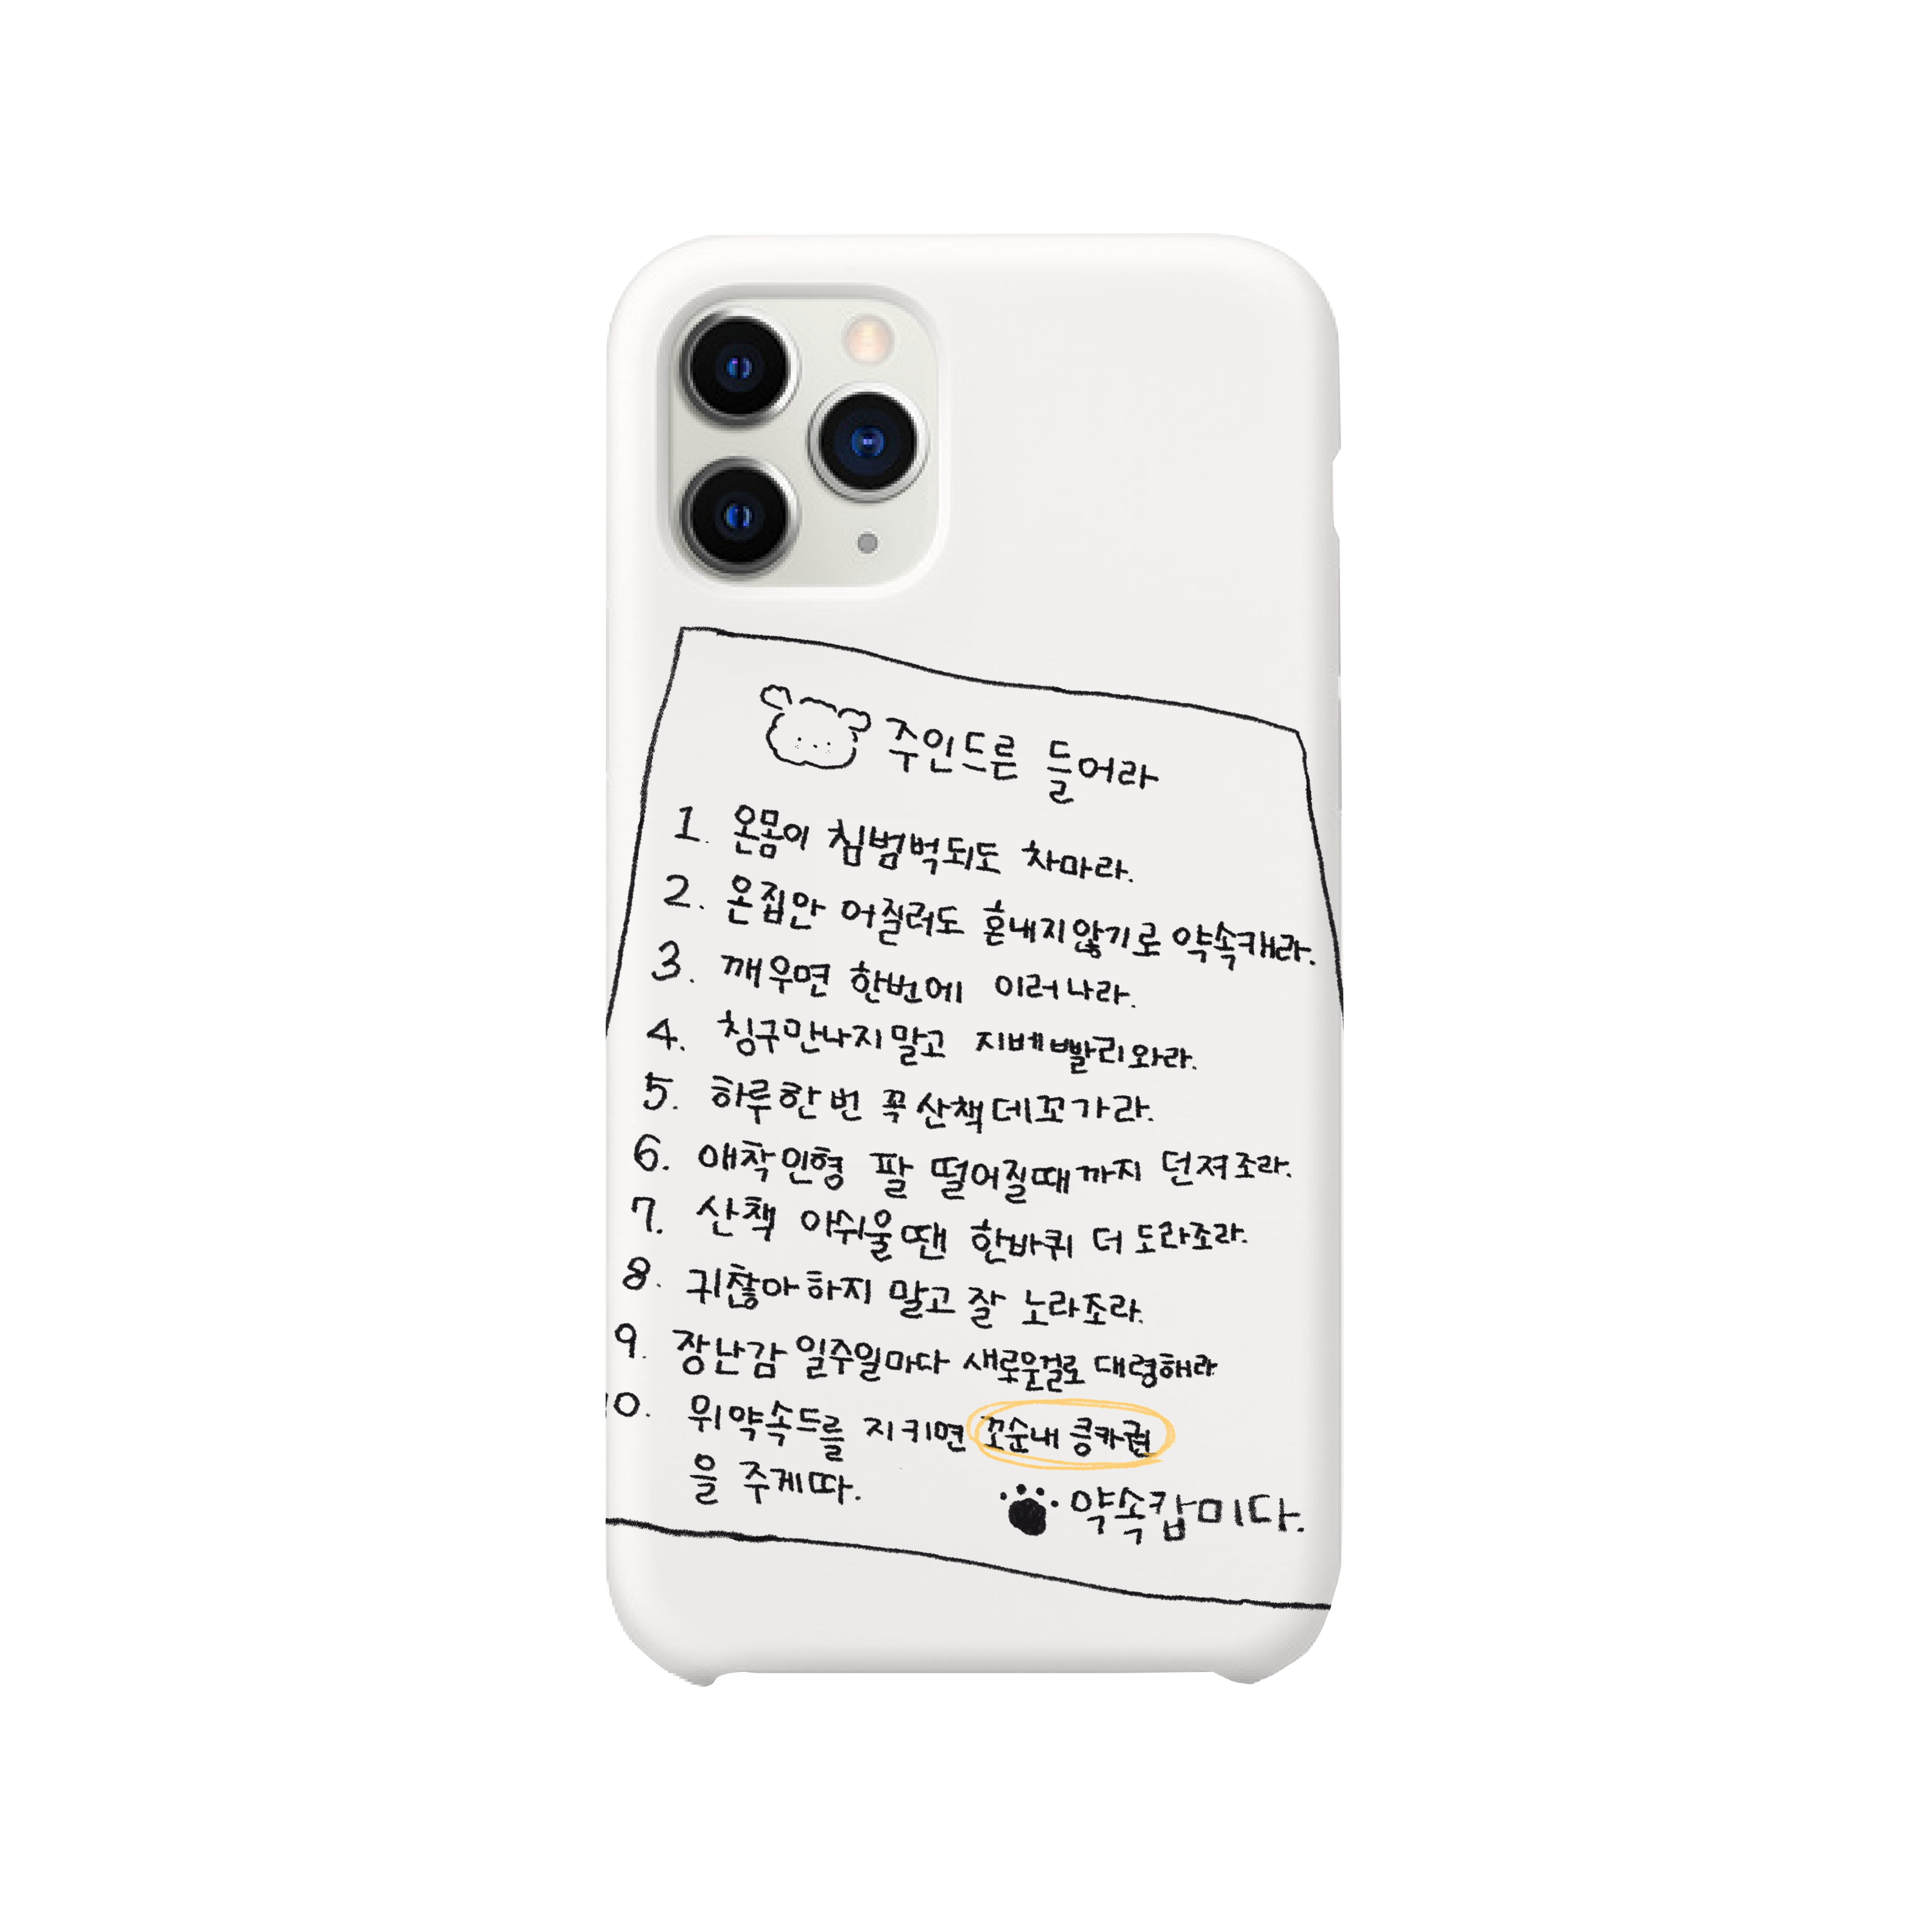 주인드른 들어라
1. 온몸이 침범벅되도 차마라.
2. 온집안 어질러도 혼내지않기로 약속캐라.
3. 깨우면 한번에 이러나라.
4. 칭구만나지말고 지베빨리와라.
5. 하루한번 꼭산책데꼬가라.
6. 애착인형 팔 떨어질때까지 던져조라.
7. 산책 아쉬울땐 한바퀴 더 도라조라.
8. 귀찮아하지 말고 잘 노라조라.
9. 장난감 일주일마다 새로운걸로 대령해라
10. 위약속드를 지키면 꼬순내 킁카권
을 주게따.
약속캅미다.